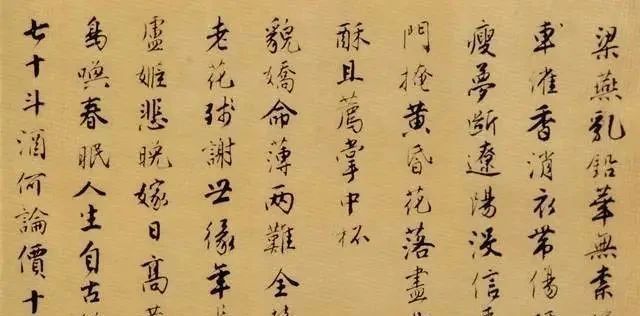 梁燕乳鉛華無柰
車催香消衣帶傷
瘦夢斷遼陽沒信
門掩黄昏花落盡
酥且薦掌中杯
貌嬌命薄兩難全
老花殘謝世緣年
盧姬悲晚嫁日高
鳥喚春眠人生自古
七十斗酒何論價十